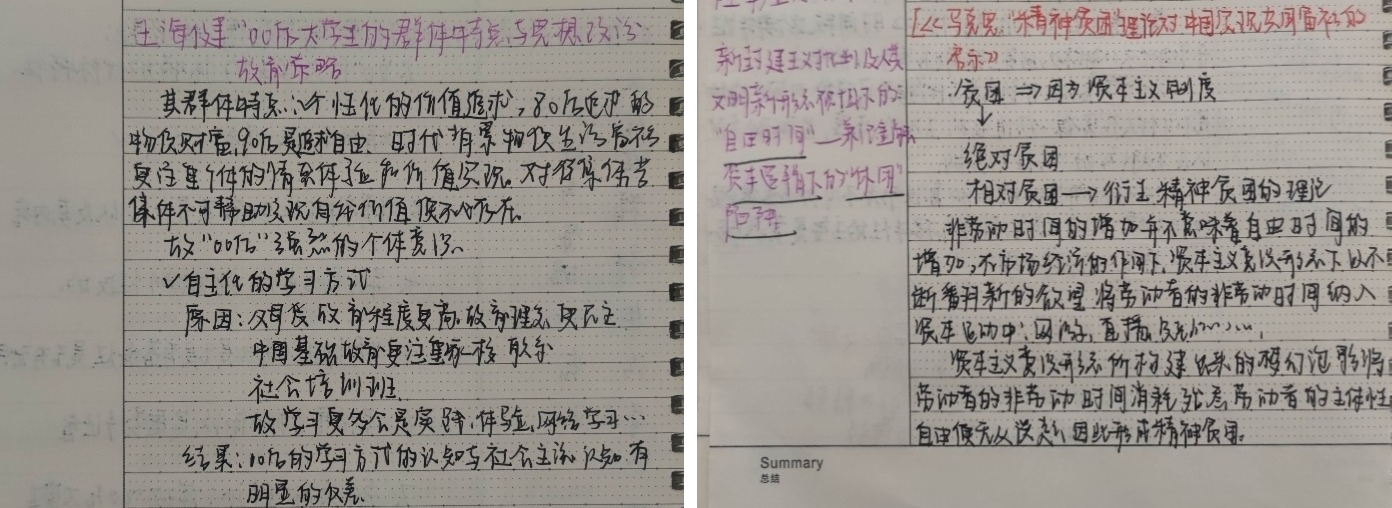 王海建“00后大学生的群体特点与思想政治
教育策略
其群体特点:√个性化的价值追求,80后追求的
物质财富,90后是追求自由. 时代背景物质生活富裕
更注重个体的情绪体验和价值实现。对待集体若
集体不可帮助实现自我价值便不必存在。
故“00后”强烈的个体意识.
√自主化的学习方式
原因:父母受教育程度更高,教育理念更民主
中国基础教育更注重家-校联合
社会培训班.
故学习更多会是实践.体验.网络学习…
结果:00后的学习方式的认知与社会主流认知有
明显的代差.
新的建主义
文明新形态
“自由时间”
资本逻辑下的“休闲”
陷阱
《马克思“精神贫困”理论对中国实现共同富裕的
启示》
贫困⇒因为资本主义制度
↓
绝对贫困
相对贫困→衍生精神贫困的理论
非劳动时间的增加并不意味着自由时间的
增加,在市场经济的作用下,资本主义意识形态下以不
断翻新的欲望将劳动者的非劳动时间纳入
资本运动中:网游,直播,
资本主义意识形态所构建出来的梦幻泡影将
劳动者的非劳动时间消耗殆尽,劳动者的主体性
自由便无从谈起,因此形成精神贫困。
Summary
总结